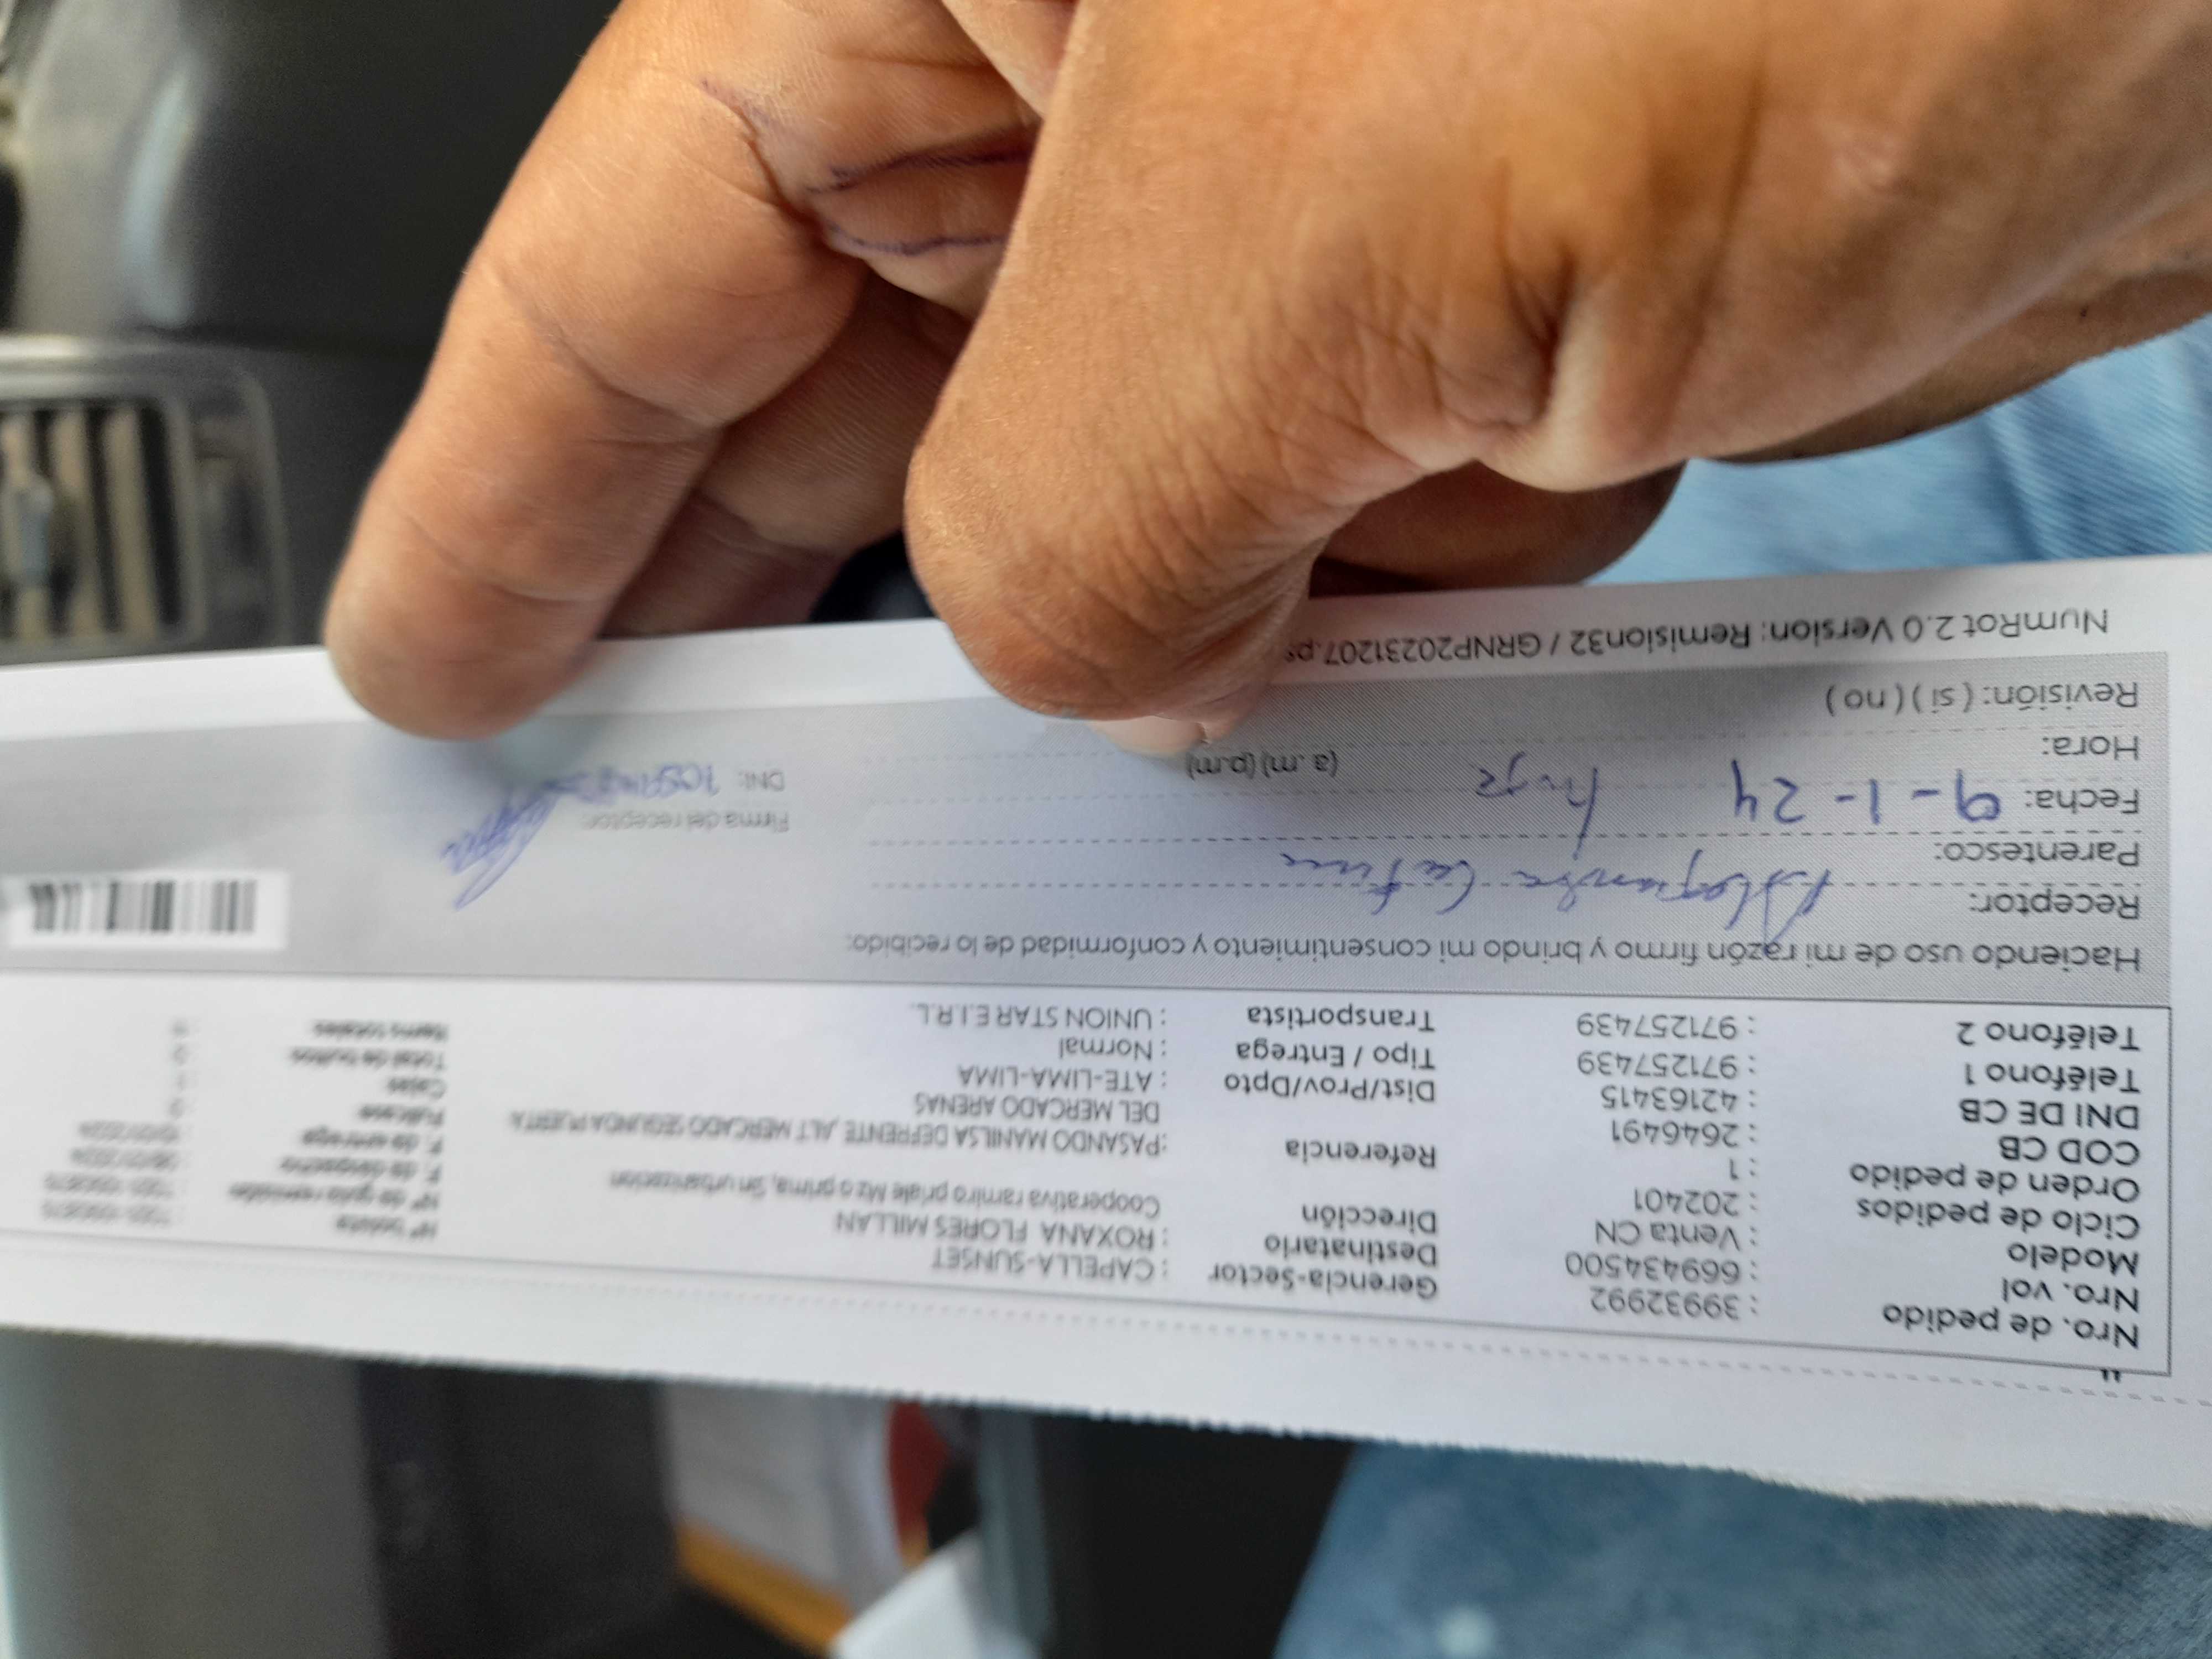 Nro. de pedido : 39932992 Gerencia-Sector : CAPELLA-SUNSET Nº boleta
Nro. vol : 669434500 Destinatario : ROXANA FLORES MILLAN Nº de guia remisión
Modelo : Venta CN Dirección Cooperativa ramiro priale Mz o prima, Sn urbanizacion F. de despacho
Ciclo de pedidos : 202401
Orden de pedido : 1 Referencia :PASANDO MANILSA DEFRENTE ,ALT MERCADO SEGUNDA PUERTA F. de entrega
COD CB : 2646491 DEL MERCADO ARENAS
DNI DE CB : 42163415 Dist/Prov/Dpto : ATE-LIMA-LIMA Cajas
Teléfono 1 : 971257439 Tipo / Entrega : Normal Total de bultos
Teléfono 2 : 971257439 Transportista : UNION STAR E.I.R.L. Items totales
Haciendo uso de mi razón firmo y brindo mi consentimiento y conformidad de lo recibido:
Receptor:
Parentesco: Firma del receptor:
Fecha: 9-1-24 DNI:
Hora: (a .m) (p.m)
Revisión: ( sí ) ( no )
NumRot 2.0 Version: Remision32 / GRNP20231207.ps